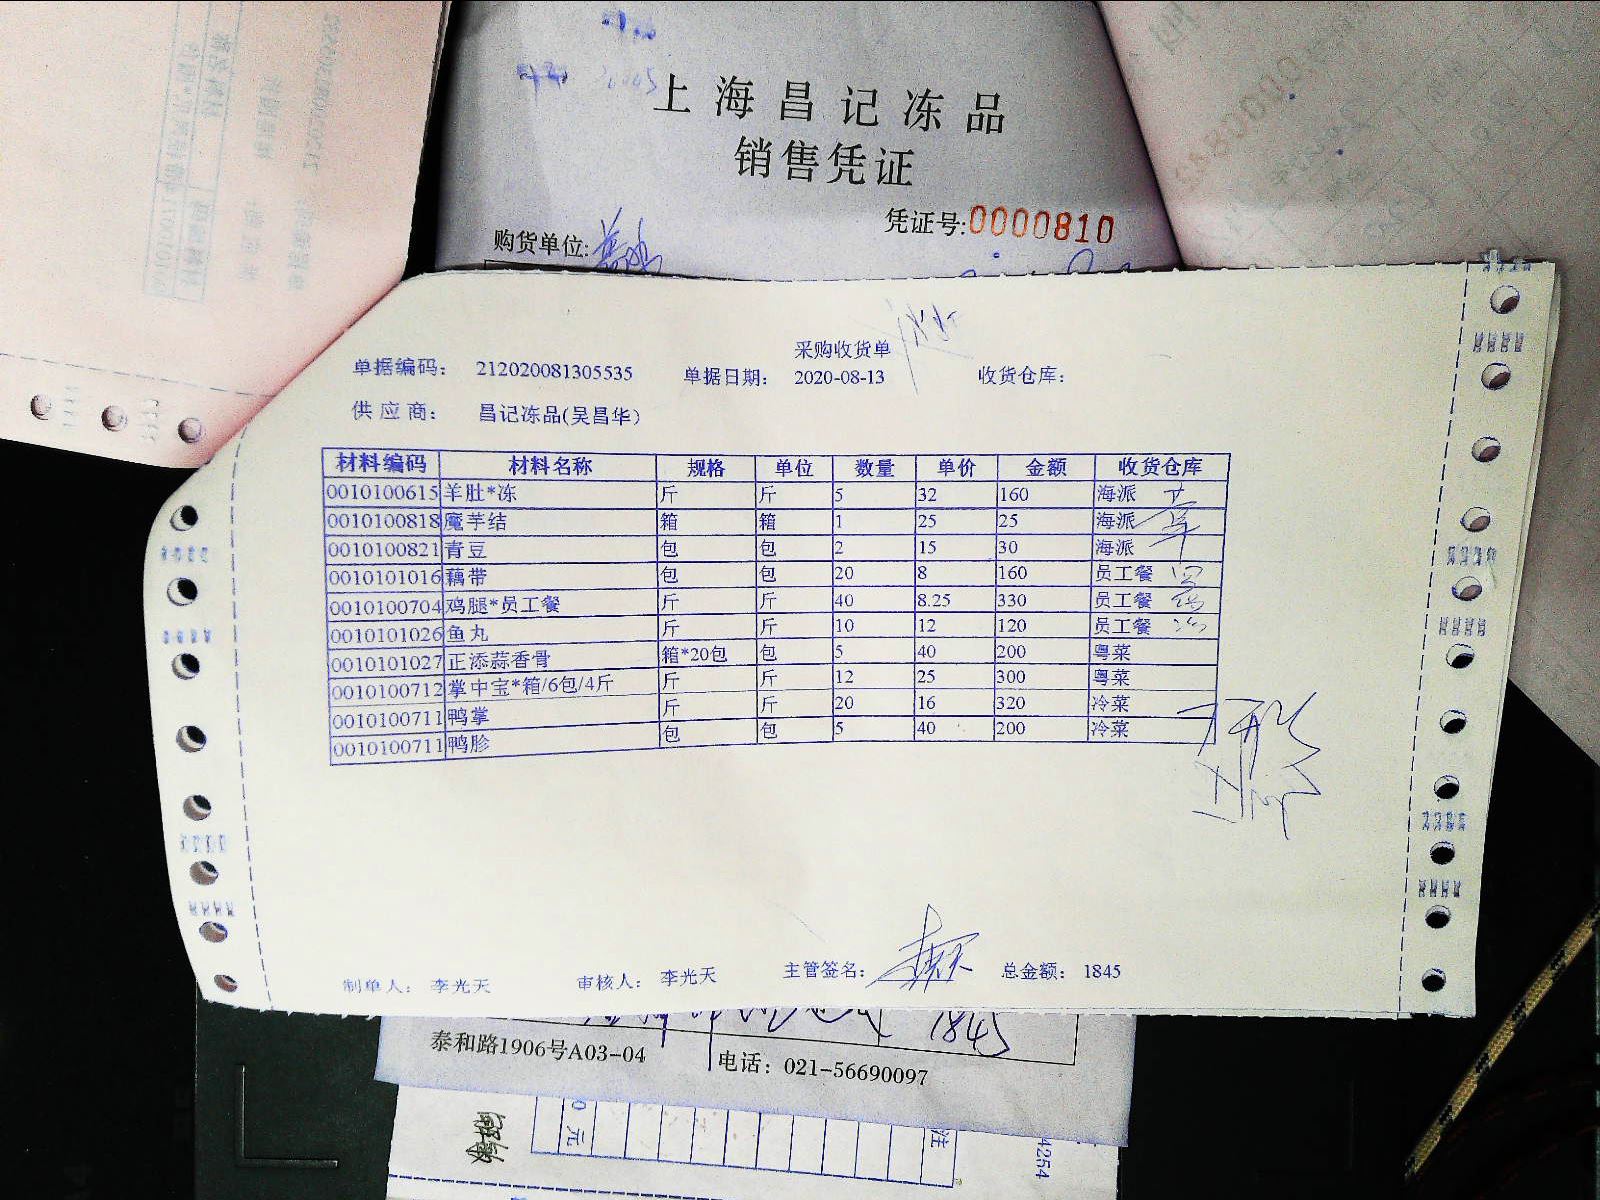 上海昌记冻品
销售凭证
凭证号:0000810
购货单位:
采购收货单
单据编码： 212020081305535 单据日期： 2020-08-13 收货仓库：
供应商： 昌记冻品(吴昌华)
材料编码 材料名称 规格 单位 数量 单价 金额 收货仓库
0010100615 羊肚*冻 斤 斤 5 32 160 海派
0010100818 魔芋结 箱 箱 1 25 25 海派
0010100821 青豆 包 包 2 15 30 海派
0010101016 藕带 包 包 20 8 160 员工餐
0010100704 鸡腿*员工餐 斤 斤 40 8.25 330 员工餐
0010101026 鱼丸 斤 斤 10 12 120 员工餐
0010101027 正添蒜香骨 箱*20包 包 5 40 200 粤菜
0010100712 掌中宝*箱/6包/4斤 斤 斤 12 25 300 粤菜
0010100711 鸭掌 斤 斤 20 16 320 冷菜
0010100711 鸭胗 包 包 5 40 200 冷菜
制单人： 李光天 审核人： 李光天 主管签名： 总金额： 1845
1845
泰和路1906号A03-04 电话：021-56690097
0元
注
4254